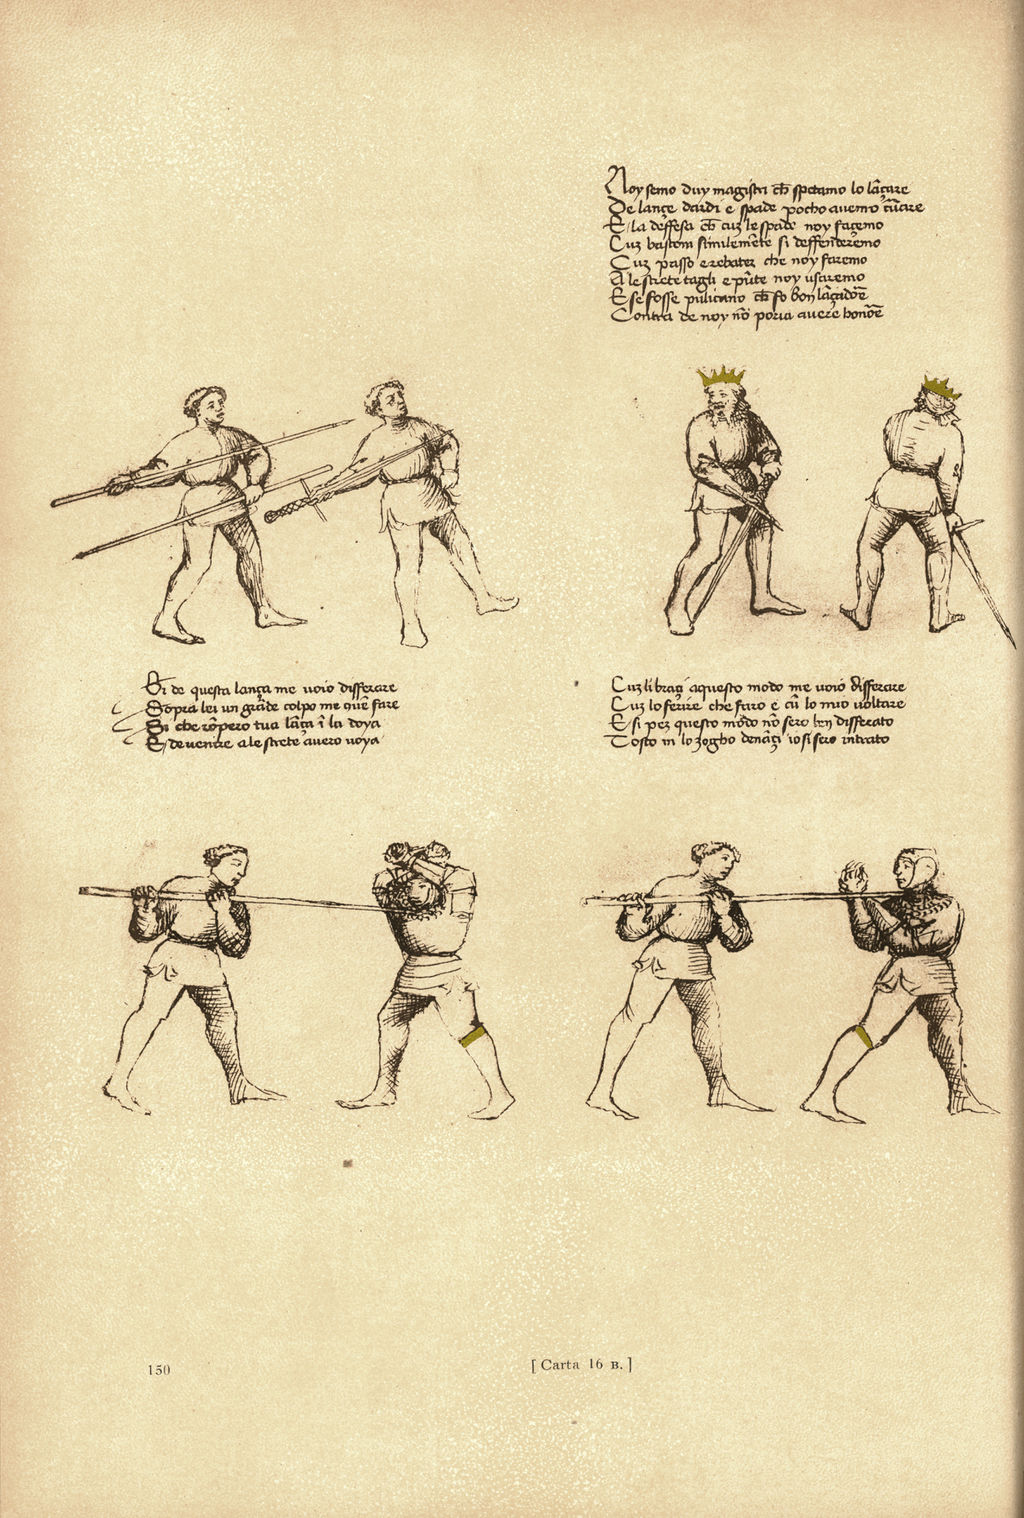 Noy semo duy magistri ch̄ spetamo lo lāçare
De lançe dardi e spade pocho avemo cūrare
E la deffesa ch̄ cuz le spade noy façemo
Cuz bastoni similemēte si deffenderemo
Cuz passo e rebater che noy faremo
A le strete tagli e pūte noy usaremo
E se fosse pulicano ch̄ fo bon lāçadore
Contra de noy nō poria avere honore
Si de questa lança me voio differare
Sopra lei un grāde colpo me cūe fare
Si che rōpero tua lāça ī la doya
E de venire a le strete avero voya
Cuz li braçi a questo modo me voio differare
Cuz lo ferire che faro e cū lo mio voltare
E si per questo modo nō sero ben differato
Tosto in lo zogho denāçi io si sero intrato
150
[Carta 16 B.]